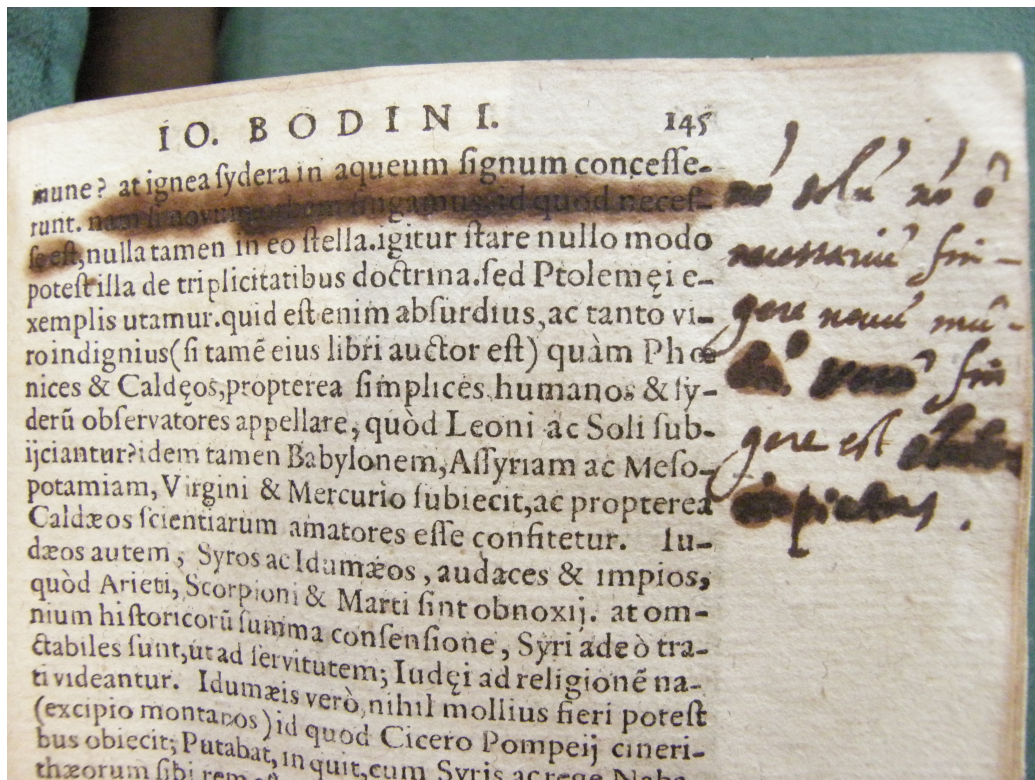 IO. BODINI. 145
mune? at ignea ſydera in aqueum ſignum conceſſe-
runt. nam ſi novum orbem fingamus, id quod neceſ-
ſe eſt, nulla tamen in eo ſtella. igitur ſtare nullo modo
poteſt illa de triplicitatibus doctrina. ſed Ptolemęi e-
xemplis utamur. quid eſt enim abſurdius, ac tanto vi-
ro indignius (ſi tamē eius libri auctor eſt) quàm Phœ
nices & Caldęos, propterea ſimplices humanos & ſy-
derū obſervatores appellare, quòd Leoni ac Soli ſub-
ijciantur? idem tamen Babylonem, Aſſyriam ac Meſo-
potamiam, Virgini & Mercurio ſubiecit, ac propterea
Caldæos ſcientiarum amatores eſſe confitetur. Iu-
dæos autem, Syros ac Idumæos, audaces & impios,
quòd Arieti, Scorpioni & Marti ſint obnoxij. at om-
nium hiſtoricorū ſumma conſenſione, Syri adeò tra-
ctabiles ſunt, ut ad ſervitutem; Iudęi ad religionē na-
ti videantur. Idumæis verò, nihil mollius fieri poteſt
(excipio montanos) id quod Cicero Pompeij cineri-
bus obiecit; Putabat, inquit, cum Syris ac rege Naba-
thæorum ſibi rem
nō ſolū nō ē
neceſſariū fin-
gere novū mū-
fin
gere est